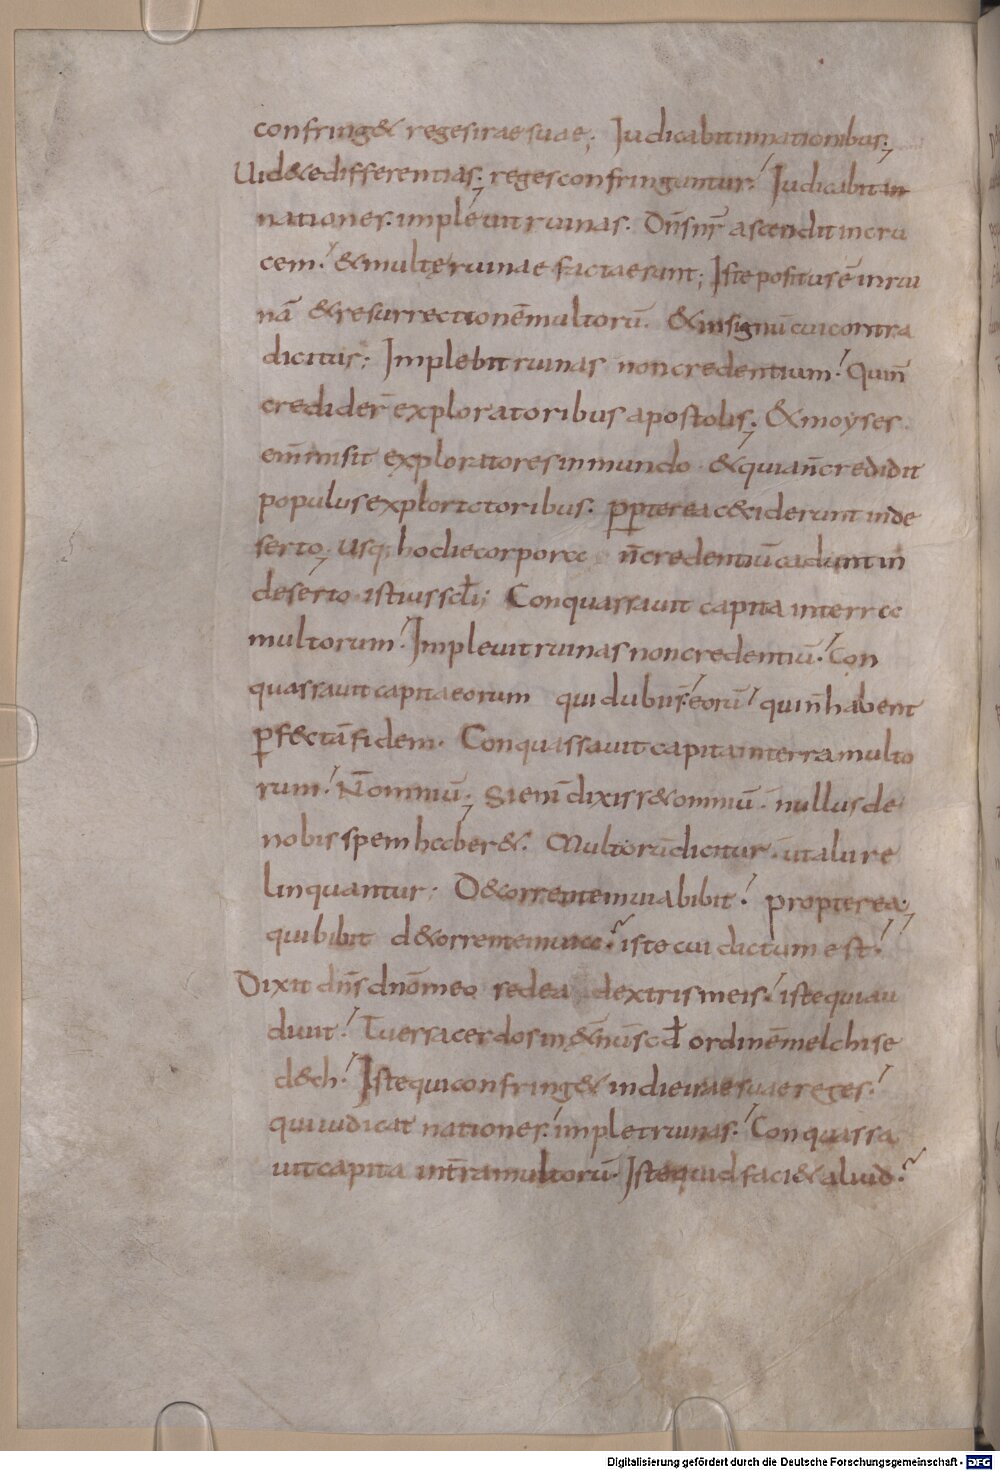 confring& reges irae suae; Iudicabit in nationibus;
Uid&e differentias; reges confringuntur! Iudicabit in
nationes. implevit ruinas. Dn̄s nr̄ ascendit in cru
cem! & multę ruinae factae sunt; Iste positus ē in rui
nā & resurrectionē multorū. & in signū cui contra
dicitur; Implebit ruinas non credentium! Qui n̄
credider̄ exploratoribus apostolis; & moyses
em̄ misit exploratores in mundo & quia n̄ credidit
populus exploratoribus. ꝓpterea c&iderunt in de
serto; Usq; hodie corpora n̄ credentiū cadunt in
deserto istius scl̄i; Conquassavit capita in terra
multorum! Implevit ruinas non credentiū! Con
quassavit capita eorum qui dubii s̄ eorū! qui n̄ habent
ꝑf&ctā fidem. Conquassavit capita in terra multo
rum! N̄ omniū; Si eni̅ dixiss& omniū. nullus de
nobis spem haber&. Multorū dicitur. ut alii re
linquantur; D&orrente in via bibit! propterea;
qui bibit d&orrente in via? iste cui dictum est!
Dixit dn̄s dn̄o meo sede a dextris meis! iste qui au
divit! Tu es sacerdos in &n̄ū scd̄ ordinē melchise
d&ch! Iste qui confring& in die irae suae reges!
qui iudicat nationes! implet ruinas! Conquassa
vit capita in tr̄a multorū. Iste quid faci& aliud?
Digitalisierung gefördert durch die Deutsche Forschungsgemeinschaft - DFG